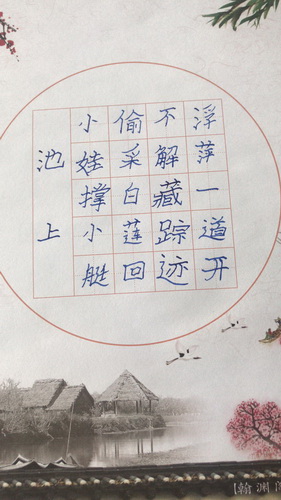 池上
小娃撑小艇
偷采白莲回
不解藏踪迹
浮萍一道开
【翰渊